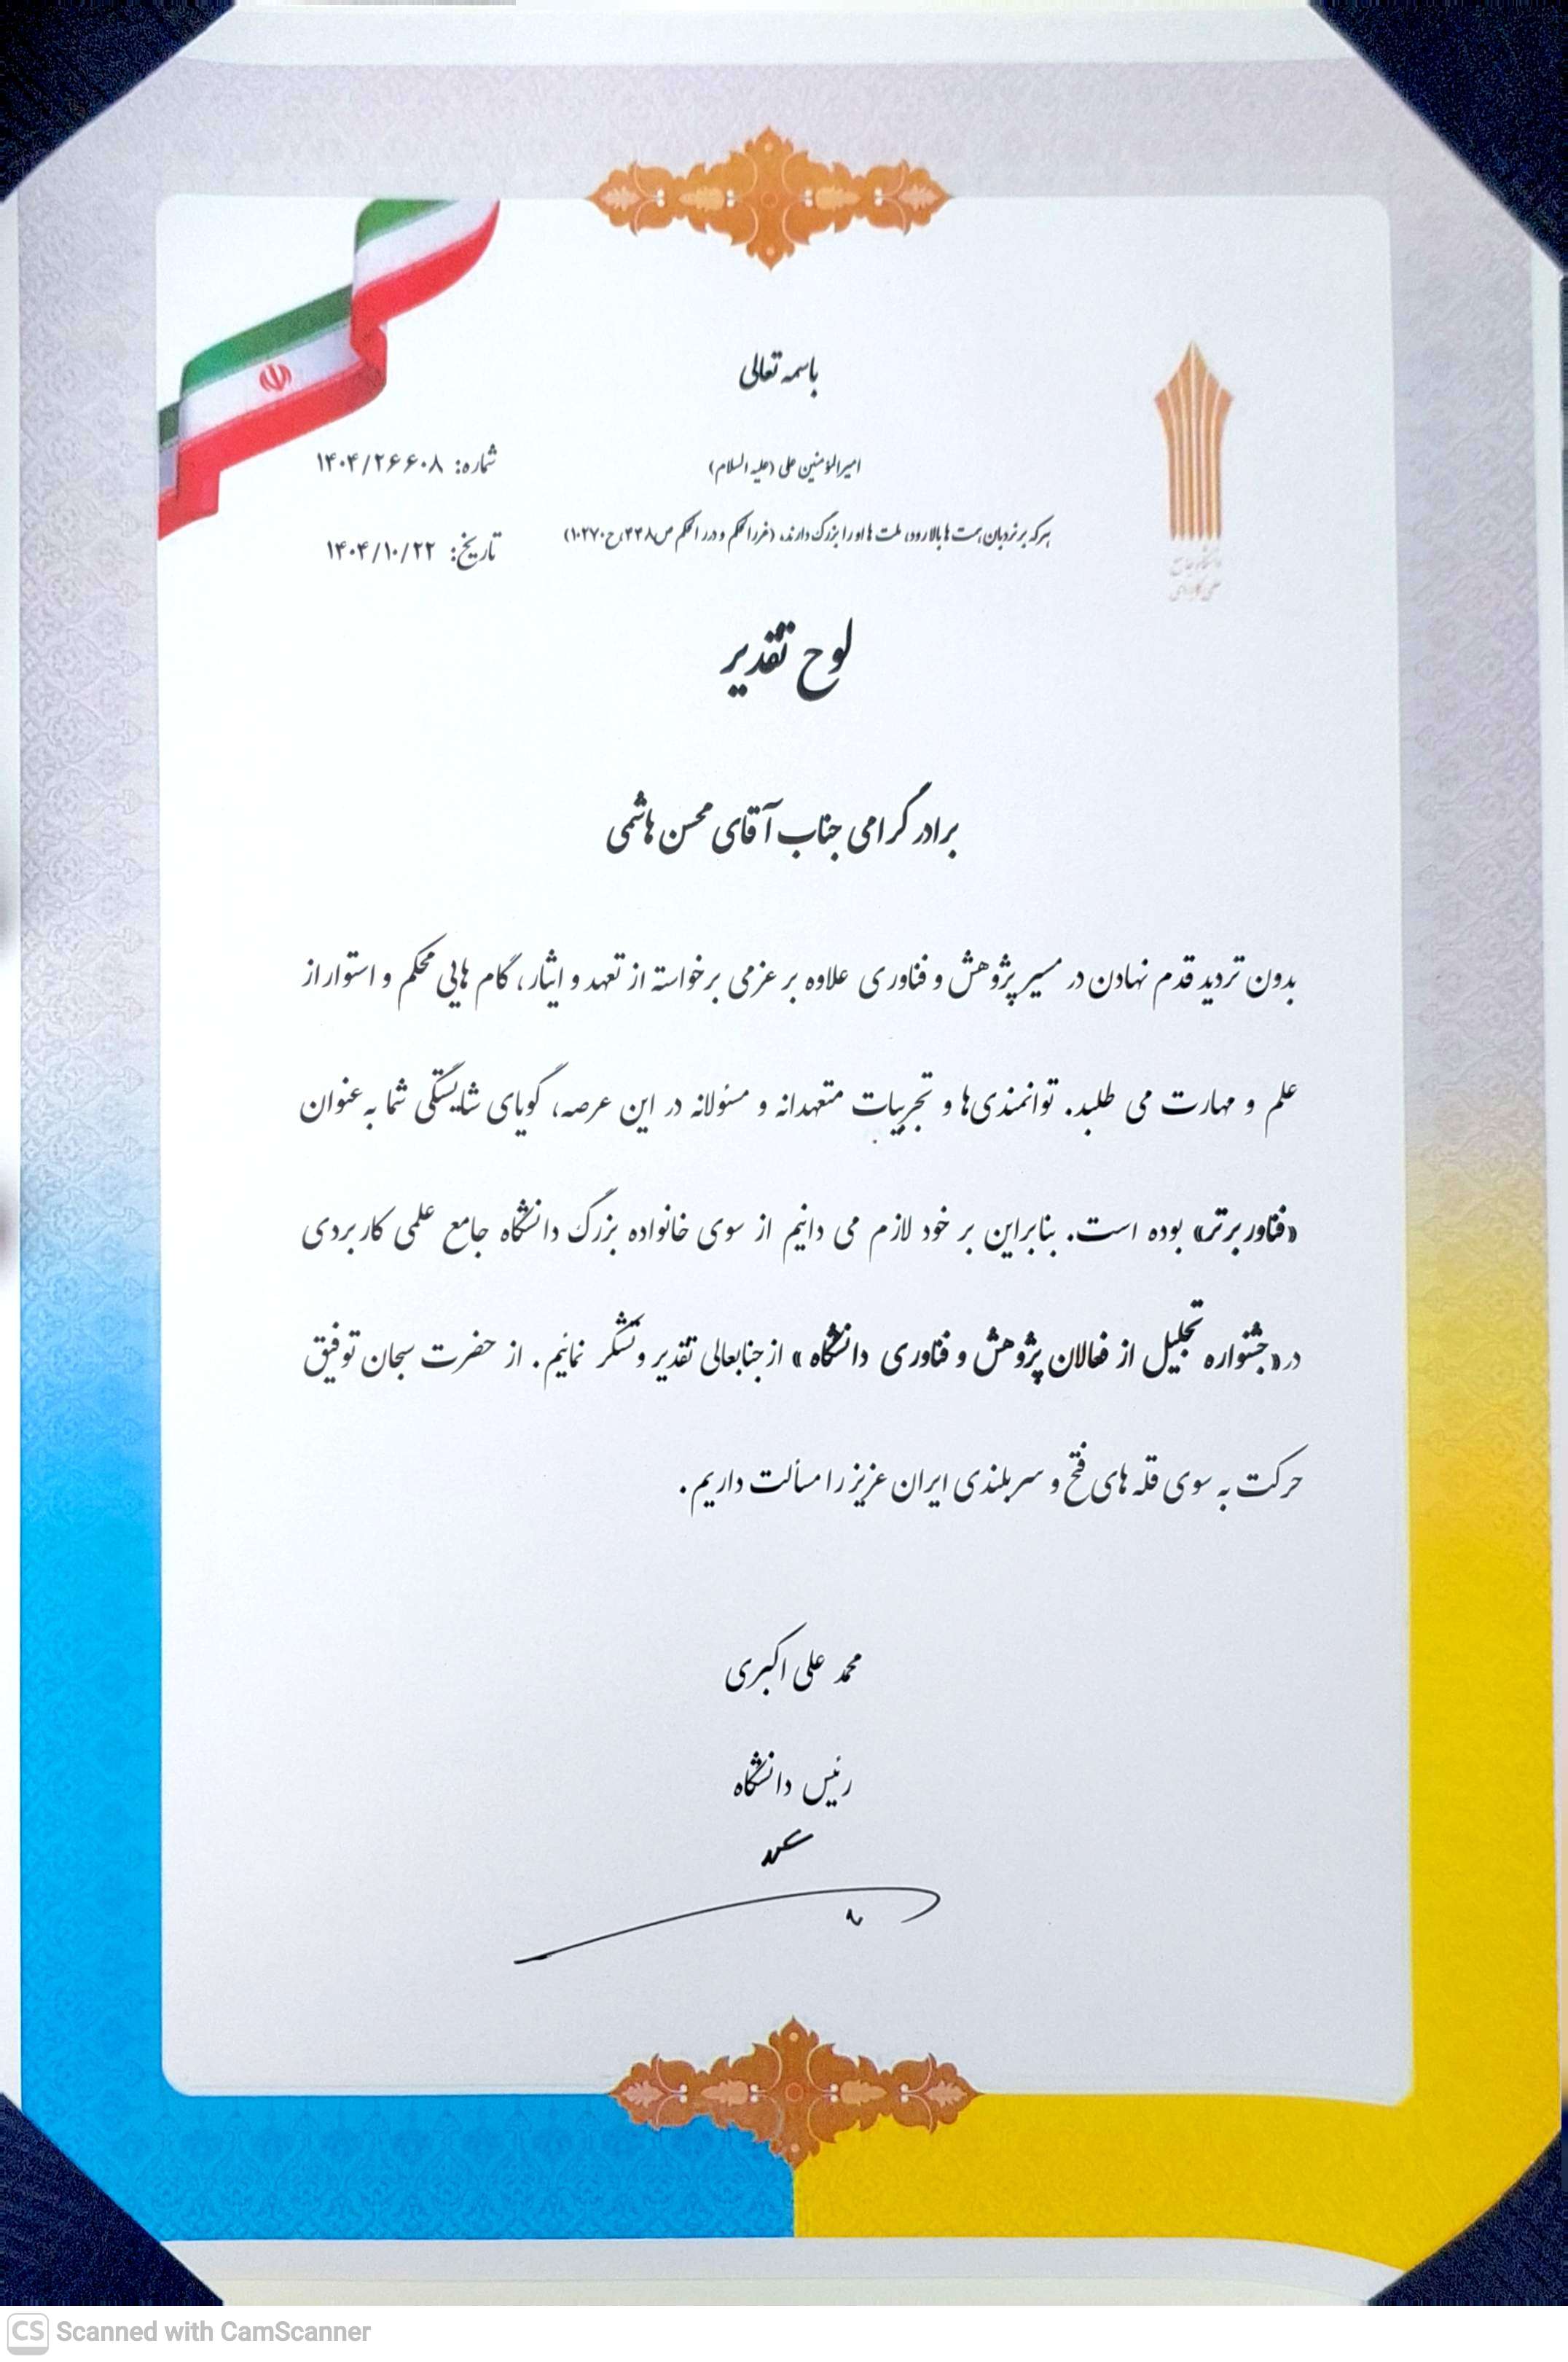 باسمه تعالی
امیرالمؤمنین علی (علیه السلام)
شماره: ۱۴۰۴/۲۶۶۰۸
هرکه بر نردبان همت ها بالا رود، ملت ها او را بزرگ دارند. (غررالحکم و دررالحکم ص۴۴۸، ح۱۰۲۷۰)
تاریخ: ۱۴۰۴/۱۰/۲۲
دانشگاه جامع
علمی کاربردی
لوح تقدیر
برادر گرامی جناب آقای محسن هاشمی
بدون تردید قدم نهادن در مسیر پژوهش و فناوری علاوه بر عزمی برخواسته از تعهد و ایثار، گام هایی محکم و استوار از
علم و مهارت می طلبد. توانمندی‌ها و تجربیات متعهدانه و مسئولانه در این عرصه، گویای شایستگی شما به عنوان
«فناور برتر» بوده است. بنابراین بر خود لازم می دانیم از سوی خانواده بزرگ دانشگاه جامع علمی کاربردی
در «جشنواره تجلیل از فعالان پژوهش و فناوری دانشگاه» از جنابعالی تقدیر و تشکر نمائیم. از حضرت سبحان توفیق
حرکت به سوی قله های فتح و سربلندی ایران عزیز را مسألت داریم.
محمد علی اکبری
رئیس دانشگاه
CS Scanned with CamScanner